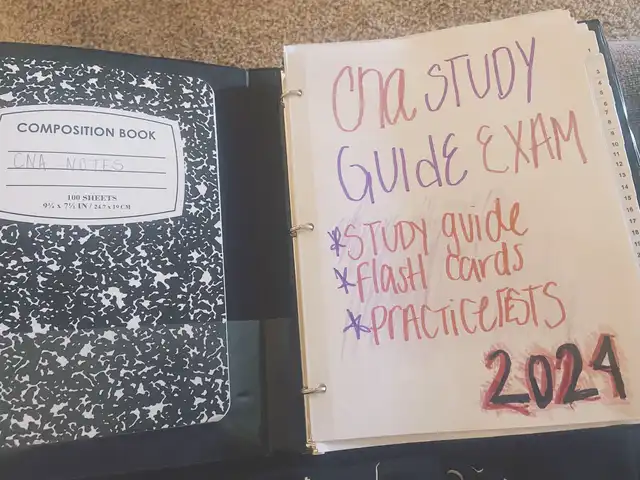 COMPOSITION BOOK
CNA NOTES
100 SHEETS
9¾ x 7½ IN / 24.7 x 19 CM
Cna STUDY
GUIdE EXAM
*STUDY guide
*FlasH cards
*PRACTiceTESTS
2024